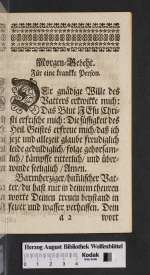 Morgen-Gebeht.
Für eine krancke Person.
DEr gnädige Wille des
Vatters erwecke mich:
Das Blut JEsu Chri-
sti erfrische mich: Die süssigkeit des
Heil. Geistes erfreue mich/ daß ich
jetz und allezeit glaube freudiglich
lebe gedultiglich/ folge gehorsam-
lich/ kämpffe ritterlich/ und über-
winde seeliglich/ Amen.
Barmhertziger/ himlischer Vat-
ter/ du hast mir in deinem theuren
worte Deinen treuen beystand in
feuer und wasser verheissen. Dem
a 2 wort
Herzog August Bibliothek Wolfenbüttel